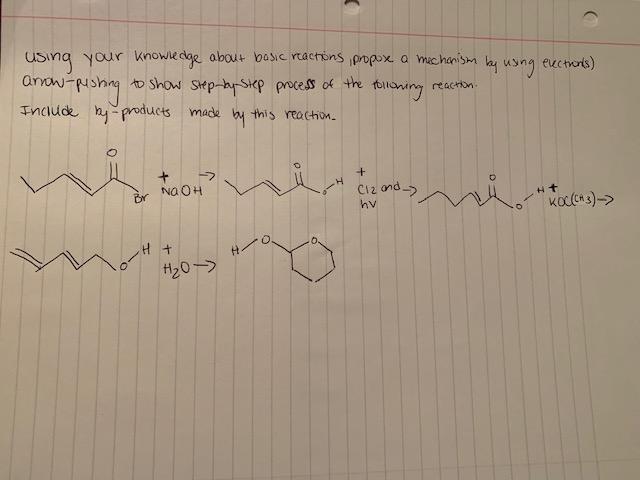 using your knowledge about basic reactions, propose a mechanism by using electron(s)
arrow-pushing to show step-by-step process of the following reaction.
Include by-products made by this reaction.
O Br + NaOH → O O H + Cl2 and hv → O O H + KOC(CH3) →
O H + H2O → H O O